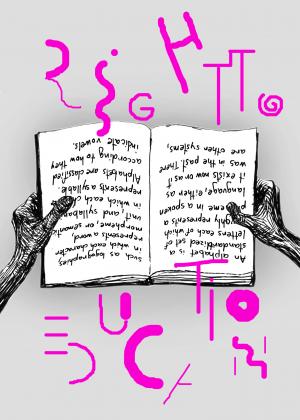 RIGHT TO
An alphabet is a
standardized set of
letters each of which
roughly represents
a phoneme in a spoken
language, either as
it exists now or as it
was in the past. There
are other systems,
such as logographies,
in which each character
represents a word,
morpheme, or semantic
unit, and syllabaries,
in which each character
represents a syllable.
Alphabets are classified
according to how they
indicate vowels.
EDUCATION